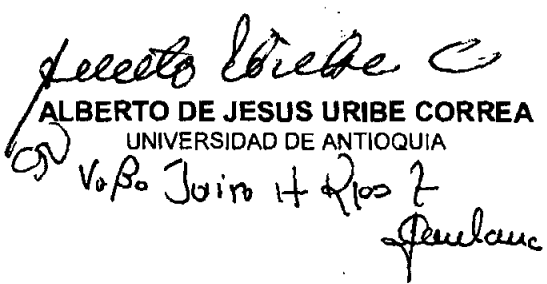 Alberto Uribe C
ALBERTO DE JESUS URIBE CORREA
UNIVERSIDAD DE ANTIOQUIA
VoBo Jairo H Rios Z